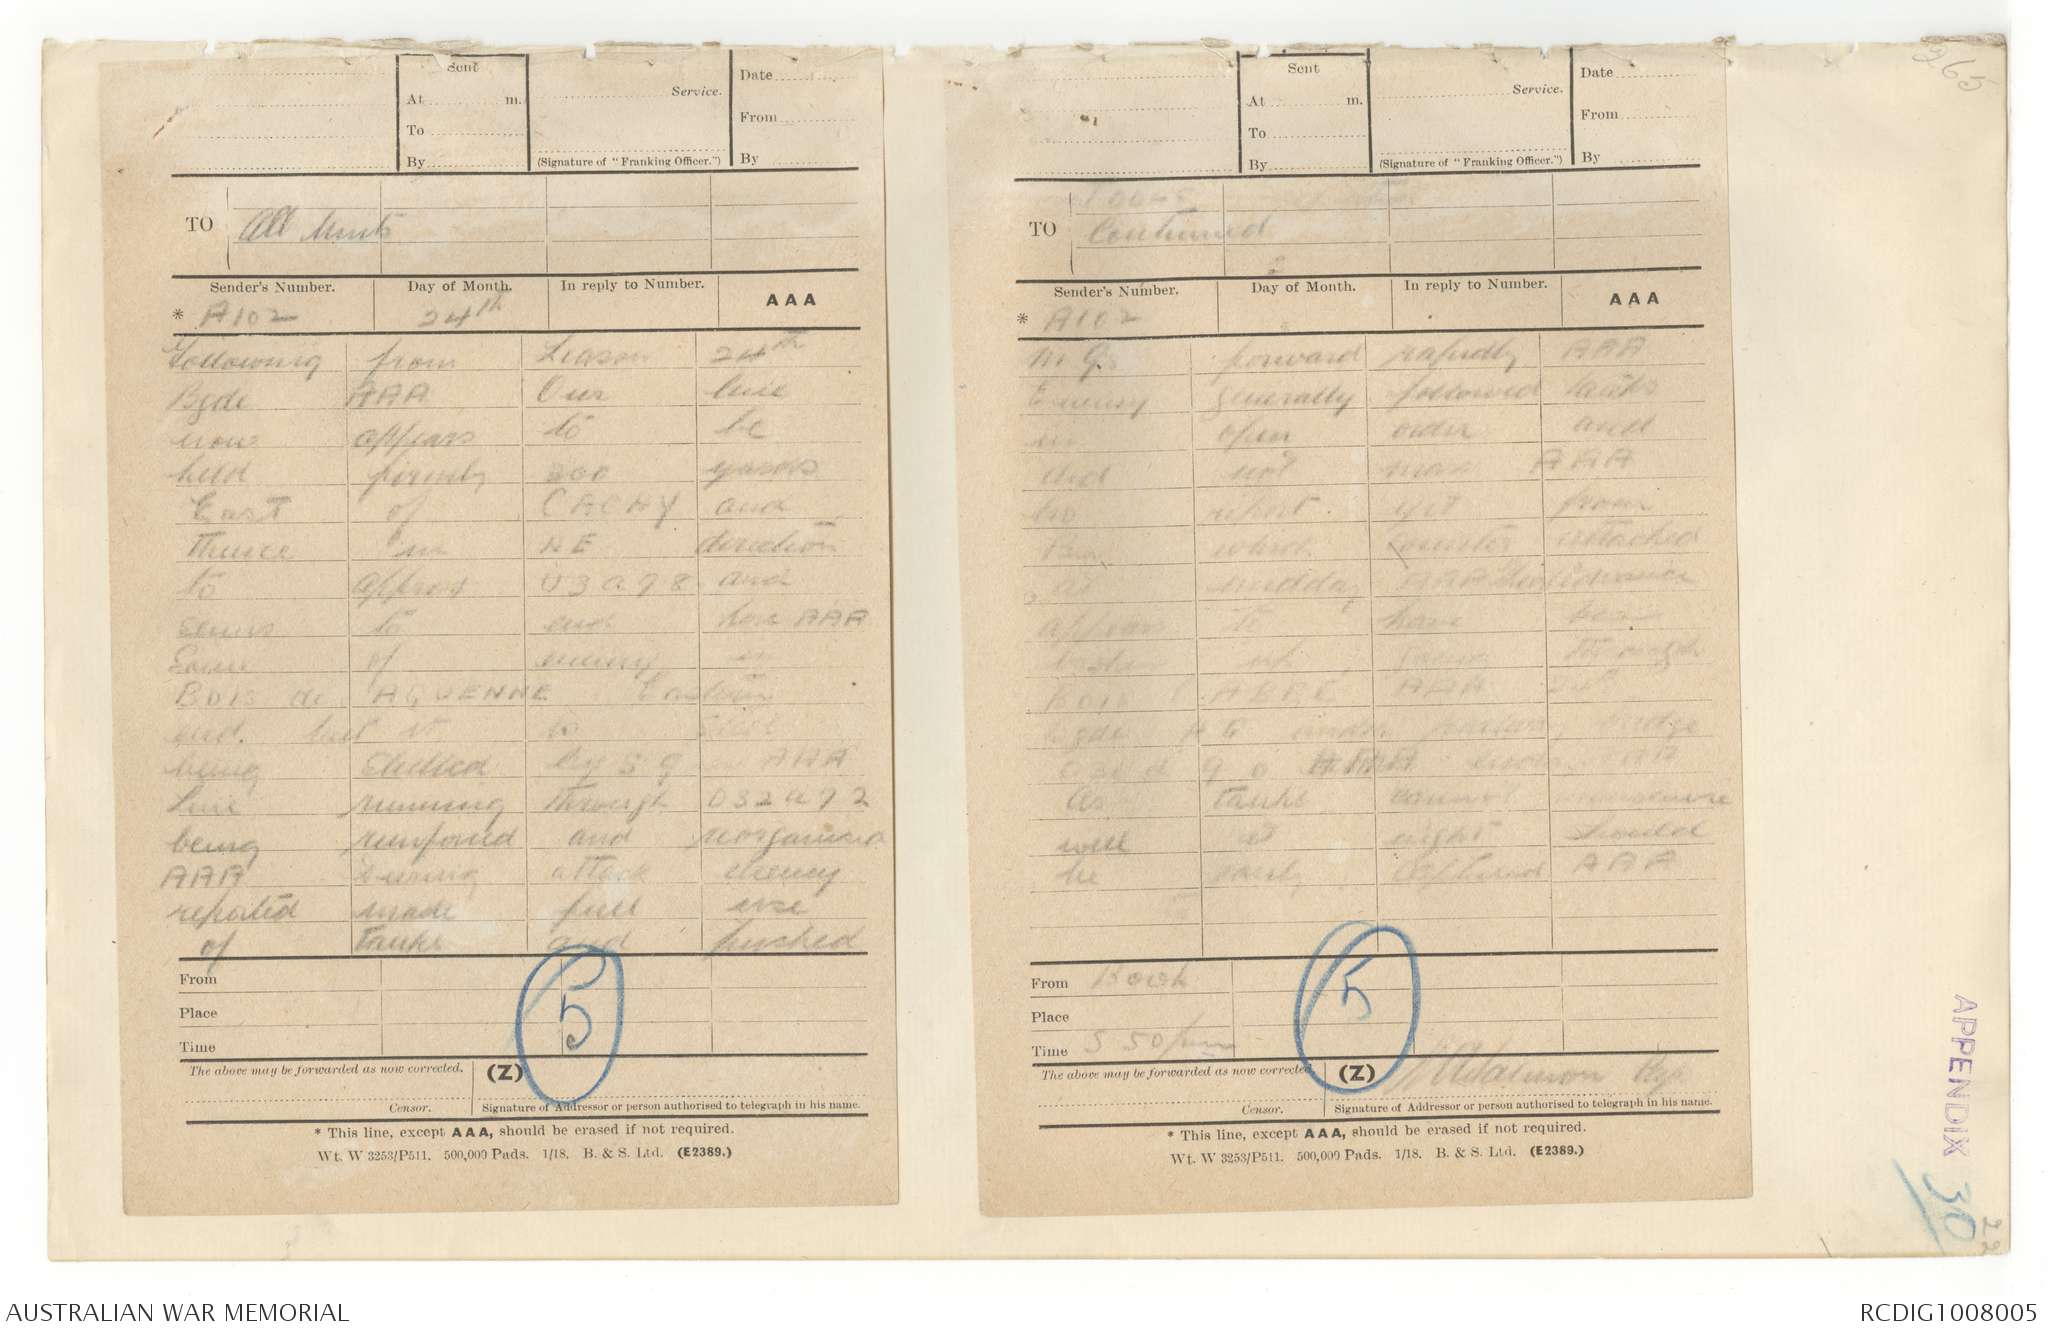 265
Sent
At m.
To
By
Service.
(Signature of "Franking Officer.")
Date
From
By
TO All Units
Sender's Number. Day of Month. In reply to Number. AAA
* A102 24th
Following from Liason 24th
Bgde AAA Our line
now appears to be
held firmly 200 yards
East of CACHY and
thence in NE direction
to approx U3a98 and
seems to end here AAA
Some of enemy in
BOIS de AQUENNE Eastern
end but it is still
being shelled by 59 AAA
Line running through O32a72
being reinforced and reorganised
AAA During attack enemy
reported made full use
of tanks and pushed
From
Place
Time
5
The above may be forwarded as now corrected. (Z)
Censor. Signature of Addressor or person authorised to telegraph in his name.
* This line, except AAA, should be erased if not required.
Wt. W 3253/P511. 500,000 Pads. 1/18. B. & S. Ltd. (E2389.)
Sent
At m.
To
By
Service.
(Signature of "Franking Officer.")
Date
From
By
TO Continued
Sender's Number. Day of Month. In reply to Number. AAA
* A102
M Gs forward rapidly AAA
Enemy generally followed tanks
in open order and
did not mass AAA
No report yet from
Bn which counter attacked
at midday AAA
appears to have been
up from through
Bois L'ABBE AAA 24th
Bgde HQ under railway bridge
AAA
As tanks cannot manoeuvre
well at night should
be easily captured AAA
From
Place
Time 5 50 pm
5
The above may be forwarded as now corrected. (Z)
Censor. Signature of Addressor or person authorised to telegraph in his name.
* This line, except AAA, should be erased if not required.
Wt. W 3253/P511. 500,000 Pads. 1/18. B. & S. Ltd. (E2389.)
APPENDIX 30
22
AUSTRALIAN WAR MEMORIAL
RCDIG1008005